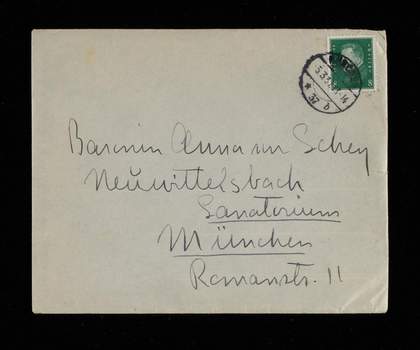 Baronin Anna von Schey
Neuwittelsbach
Sanatorium
München
Romanstr. 11
* 37 b